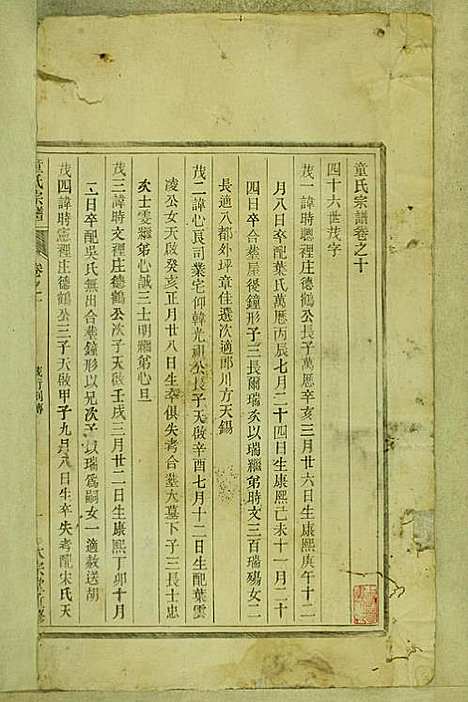 童氏宗譜卷之十
四十六世茂字
茂一諱時聰裡庄德鶴公長子萬曆辛亥三月廿六日生康熙庚午十二
月八日卒配葉氏萬曆丙辰七月二十四日生康熙己未十一月二十
四日卒合葬屋後鐘形子三長爾瑞次以瑞繼弟時文三百瑞殤女二
長適八都外坪章佳選次適郎川方天錫
茂二諱心良司業宅仰韓光祖公長子天啟辛酉七月十二日生配葉雲
凌公女天啟癸亥正月廿八日生卒俱失考合墓大墓下子三長士忠
次士雯繼弟心誠三士明繼弟心旦
茂三諱時文裡庄德鶴公次子天啟壬戌三月廿二日生康熙丁卯十月
二日卒配吳氏無出合葬鐘形以兄次子以瑞為嗣女一適赦送胡
茂四諱時憲裡庄德鶴公三子天啟甲子九月八日生卒失考配宋氏天
童氏宗譜
卷之十